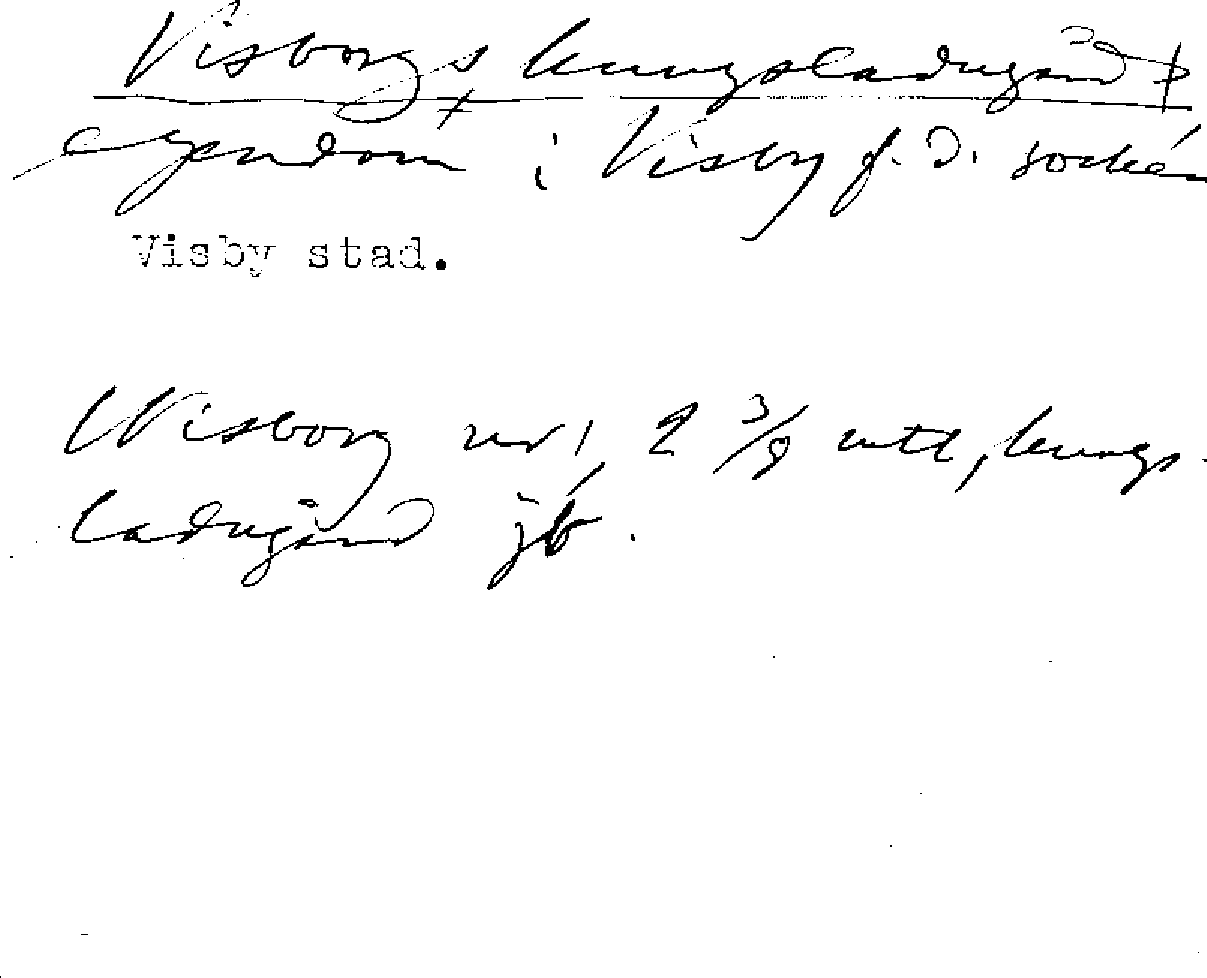 Visborgs kungsladugård +
egendom i Visby f.d. socken
Visby stad.
Wisborg nr 1, 2 3/8 mtl, kungs-
ladugård jb.